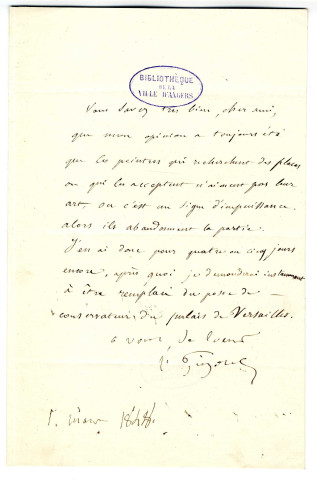 BIBLIOTHÈQUE
DE LA
VILLE D'ANGERS
Vous savez très bien, cher ami,
que mon opinion a toujours été
que les peintres qui recherchent des places
ou qui les acceptent n'aiment pas leur
art, ou c'est un signe d'impuissance,
alors ils abandonnent la partie.
J'en ai donc pour quatre ou cinq jours
encore, après quoi je demanderai instamment
à être remplacé du poste de —
conservateur du palais de Versailles.
à vous, de coeur
mars 1848